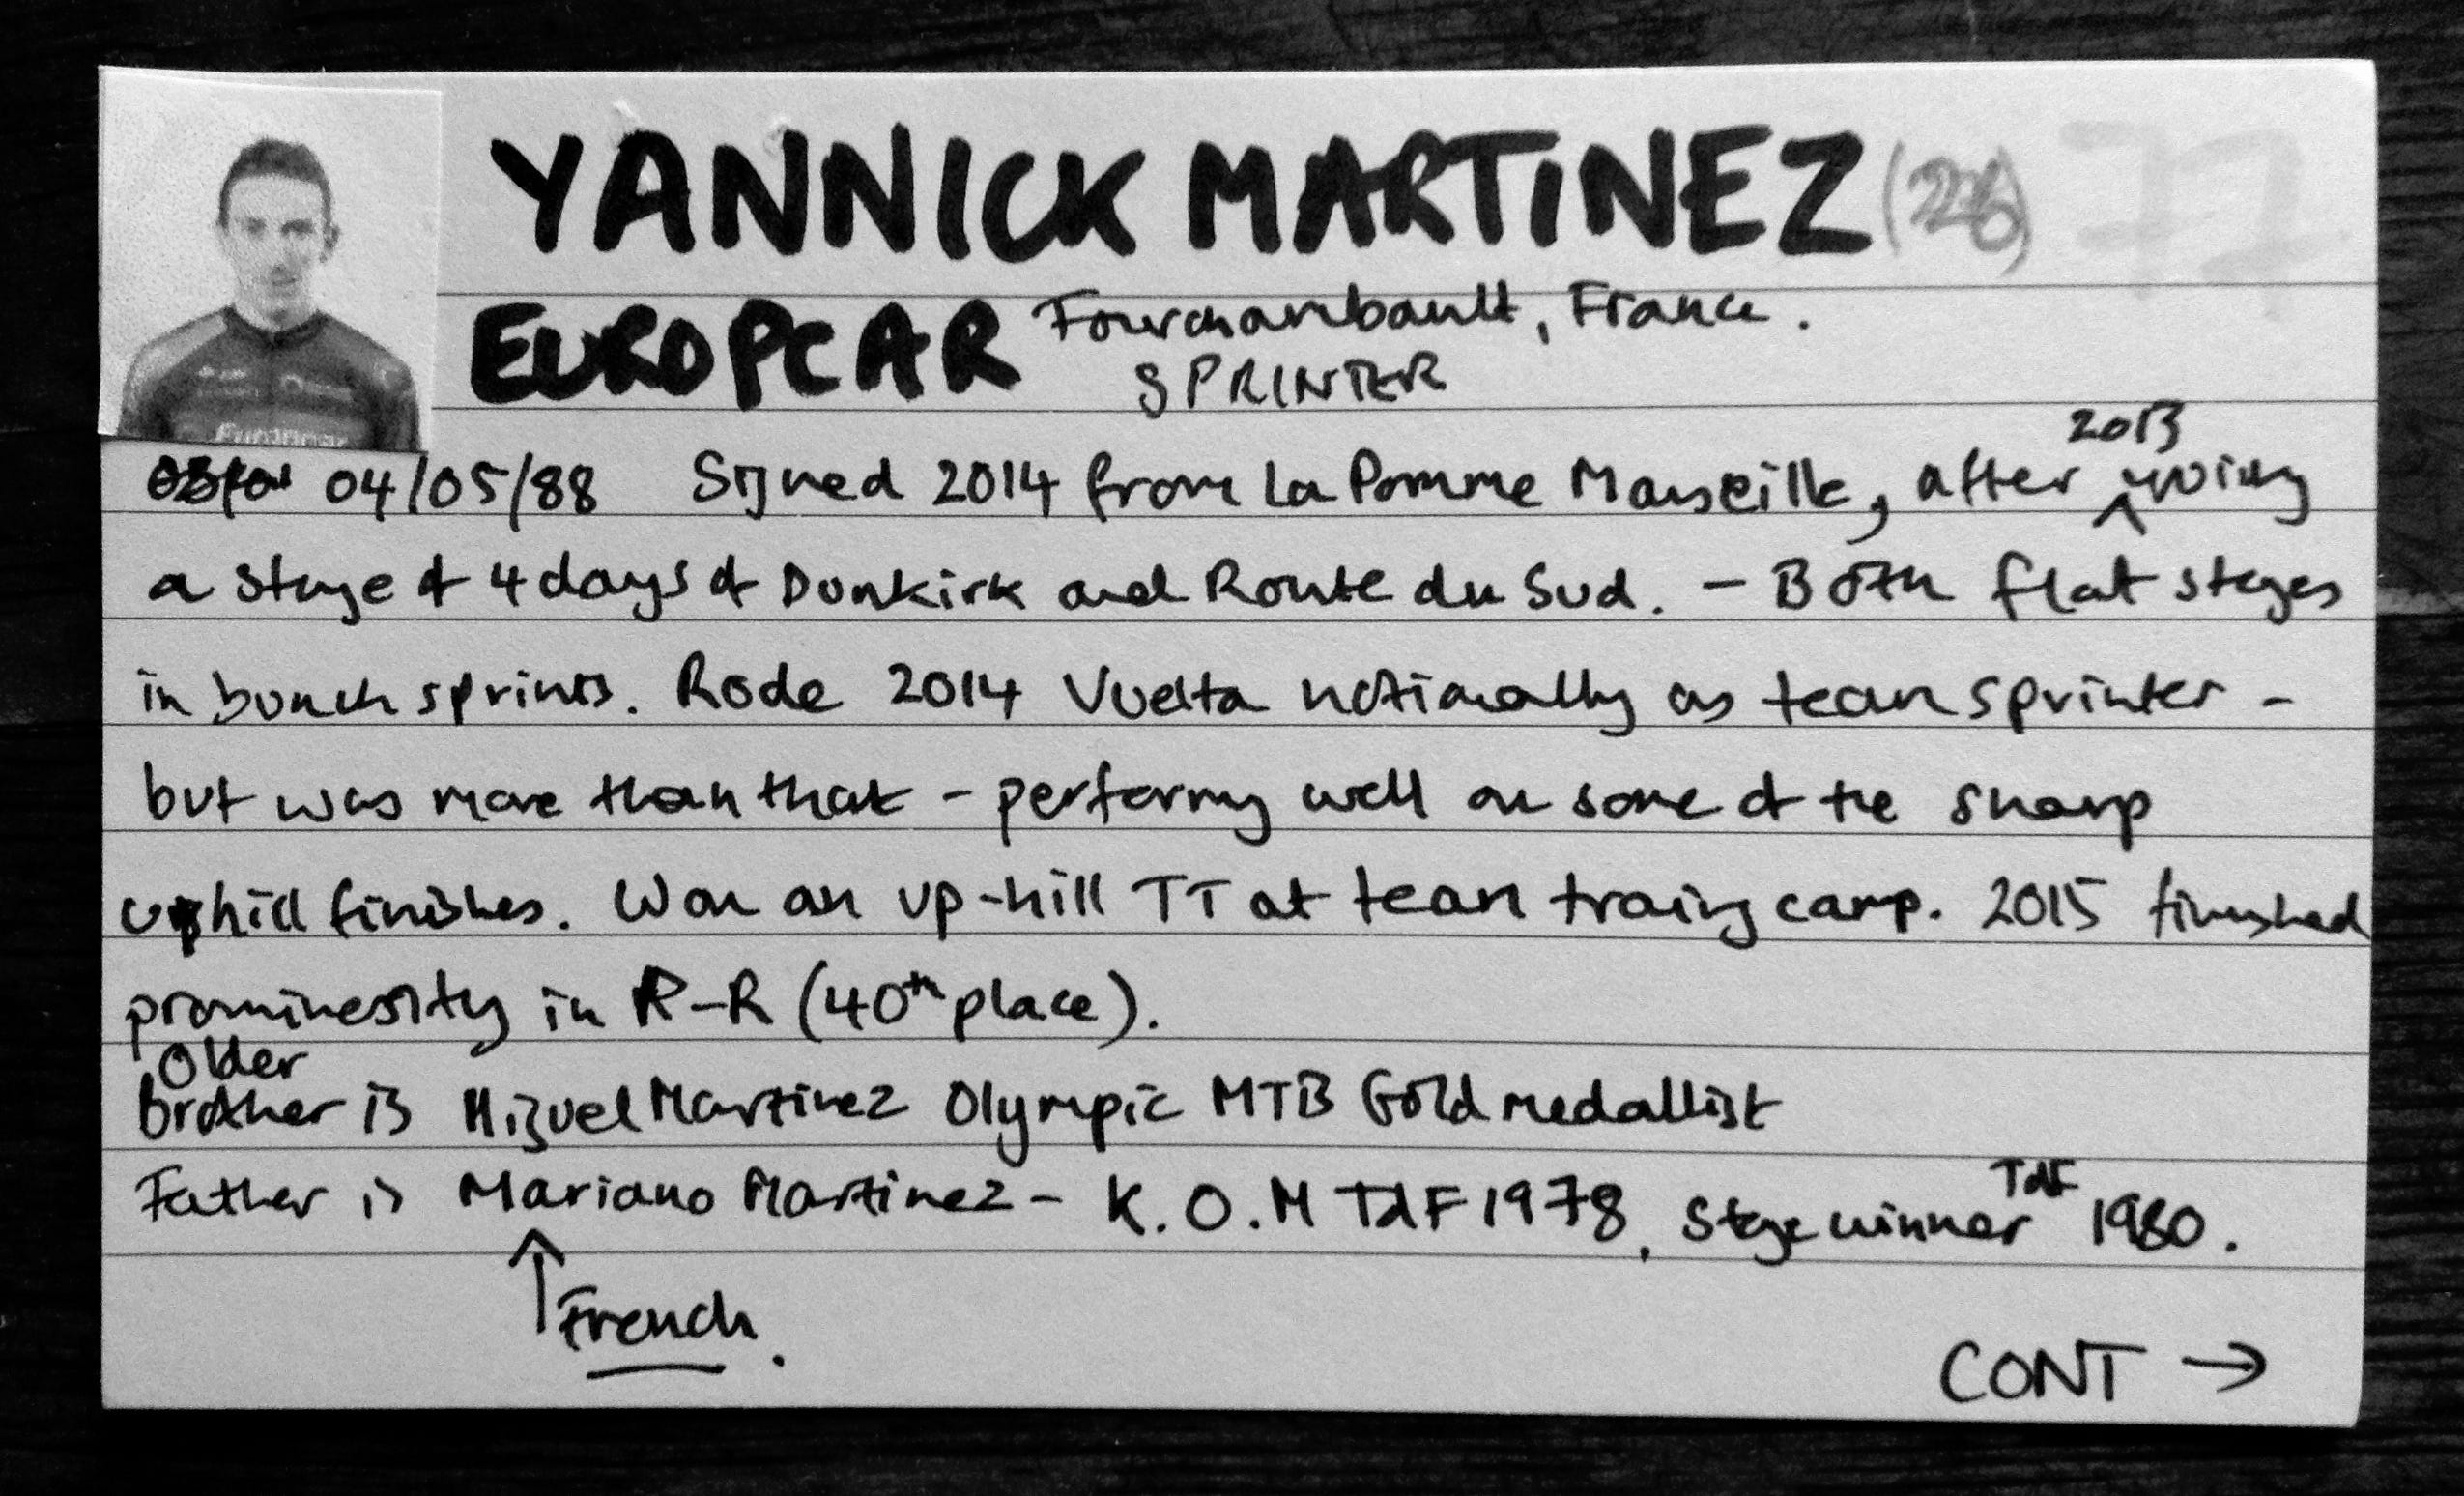 YANNICK MARTINEZ (26)
EUROPCAR Fourchambault, France.
SPRINTER
Europcar
2013
04/05/88 Signed 2014 from La Pomme Marseille, after
a stage of 4 days of Dunkirk and Route du Sud. - Both flat stages
in bunch sprints. Rode 2014 Vuelta notionally as team sprinter -
but was more than that - performing well on some of the sharp
uphill finishes. Won an up-hill TT at team training camp. 2015 finished
prominently in R-R (40th place).
Older
brother is Miguel Martinez Olympic MTB Gold medallist
TdF
Father is Mariano Martinez - K.O.M TdF 1978, Stage winner 1980.
↑ French.
CONT →